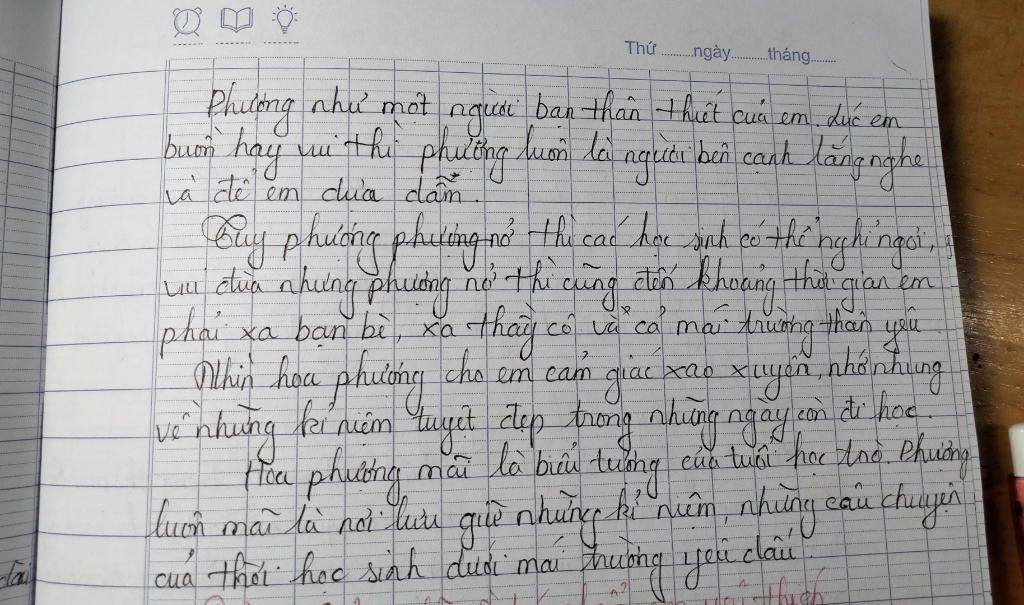 Thứ ..........ngày..........tháng.......
Phượng như một người bạn thân thiết của em. lúc em
buồn hay vui thì phượng luôn là người bên cạnh lắng nghe
và để em dựa dẫm.
Tuy phượng phượng nở thì các học sinh có thể nghỉ ngơi,
vui đùa nhưng phượng nở thì cũng đến khoảng thời gian em
phải xa bạn bè, xa thầy cô và cả mái trường thân yêu
Nhìn hoa phượng cho em cảm giác xao xuyến, nhớ nhung
về những kỉ niệm tuyệt đẹp trong những ngày còn đi học.
Hoa phượng mãi là biểu tượng của tuổi học trò. Phượng
luôn mãi là nơi lưu giữ những kỉ niệm, những câu chuyện
của thời học sinh dưới mái trường yêu dấu.